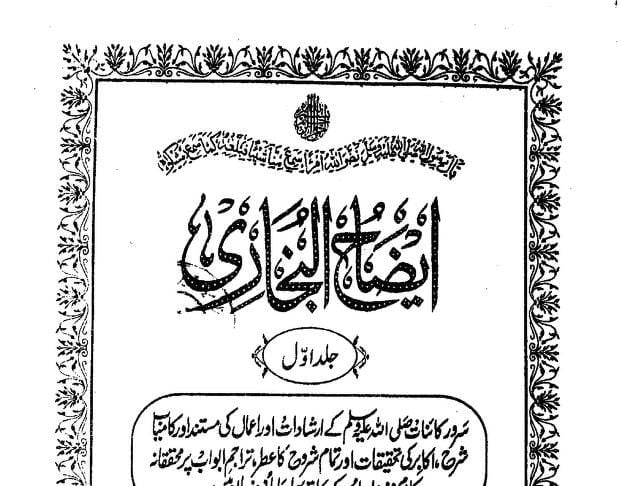 قال رسول الله صلى الله عليه وسلم نضر الله امرأ سمع منا شيئا فبلغه كما سمع
ایضاح البخاری
جلد اوّل
سرور کائنات صلی اللہ علیہ وسلم کے ارشادات اور اعمال کی مستند اور کامیاب
شرح، اکابر کی تحقیقات اور تمام شروح کا عطر، تراجم ابواب پر محققانہ